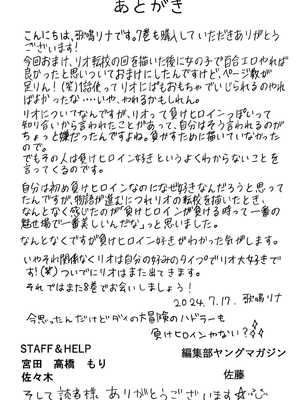 あとがき
こんにちは、歌鳴リナです。7巻も購入していただきありがとう
ございます!
今回おまけ、リオ転校の回を描いた後に女の子で百合エロやれば
良かったと思いついておまけにしたんですけど、ページ数が
足りん!(笑)信使ってリオにばもおもちゃでいじられるのやれ
ばよかったな……いや、やれるかもしれん。
リオについてなんですが、リオって負けヒロインっぽいって
知り合いから言われたことがあって、自分はそう言われるのが
ちょっと嫌だったんですよね。負かすために描いていなかった
ので。
でもその人は負けヒロイン好きというよくわからないことを
言ってくるのです。
自分は初め負けヒロインなのになぜ好きなんだろうと思って
たんですが、物語が進むにつれリオの転校を描いたとき、
なんとなく感じたのが「負けヒロインが負ける時って一番の
魅せ場で一番美しいんだな」っと思いました。
なんとなくですが負けヒロイン好きがわかった気がします。
いやそれ関係なくリオは自分の好みのタイプでリオ大好きで
す!(笑)ついでにリオはまた出てきます。
それではまた8巻でお会いしましょう!
2024.7.17. 歌鳴リナ
今思ったんだけどダイの大冒険のハドラーも
負けヒロインやない?
STAFF&HELP
宮田 高橋 もり
佐々木
編集部ヤングマガジン
佐藤
そして読者様、ありがとうございます